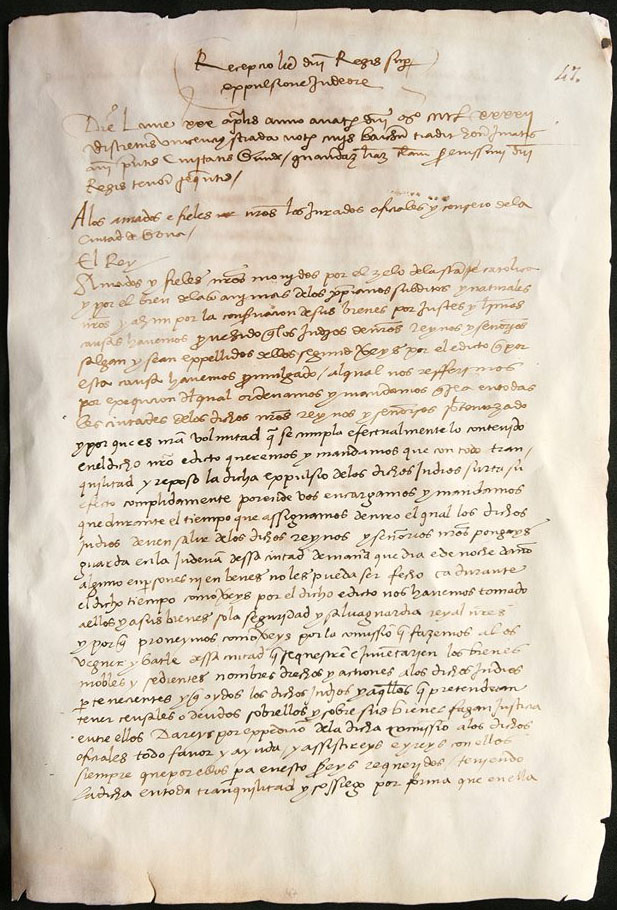 Receptio lre dni Regis sup
expulsione Judeorum
47.
Die Lune xxx aplis anno a natte dni Mo CCCC LXXXXII
Regis tenor sequitur /
A los amados e fieles nros los Jurados officiales y consejo de la
Ciudad de Girona /
El Rey
Amados y fieles nros movidos por el zelo de la sta fe catolica
y por el bien de las animas de los xpianos subditos y naturales
nros y ahun por la conservacion de sus bienes por justes y
causas havemos provehido q los Judios de nros reynos y señorios
salgan y sean expellidos dellos segund vereys por el edicto q por
esta causa havemos promulgado / al qual nos refferimos
por exequcion del qual ordenamos y mandamos q sea en todas
las ciudades de los dichos nros reynos y señorios
y por que es nra voluntad q se cumpla efectualmente lo contenido
en el dicho nro edicto queremos y mandamos que con toda tran
quilitad y reposo la dicha expulsio de los dichos Judios surta su
efecto complidamente porende vos encargamos y mandamos
que durante el tiempo que assignamos dentro el qual los dichos
Judios deven salir de los dichos reynos y señorios nros pongays
guarda en la Juderia dessa ciutad de manera que dia e de noche daño
alguno en persones ni en benes no les pueda ser fecho ca durante
el dicho tiempo como vereys por el dicho edicto nos havemos tomado
a ellos y a sus bienes so la seguridad y salvaguardia reyal nres
y porq proveymos como vereys por la comissio q fazemos al os
veguer y batle dessa ciutad q sequestren e inventarien los bienes
mobles y sedientes nombres drechos y actiones a los dichos Judios
pertenecientes y q oydos los dichos Judios y aqllos q pretenderan
tener censales o deudos sobrellos y sobre sus bienes fagan Justicia
entre ellos Dareys por expedicio de la dicha comissio a los dichos
officiales todo favor y ayuda / y assistireys e yreys con ellos
siempre que por ellos pa en esto sereys requeridos / teniendo
la dicha en toda tranquilitad y sossiego por forma que en ella